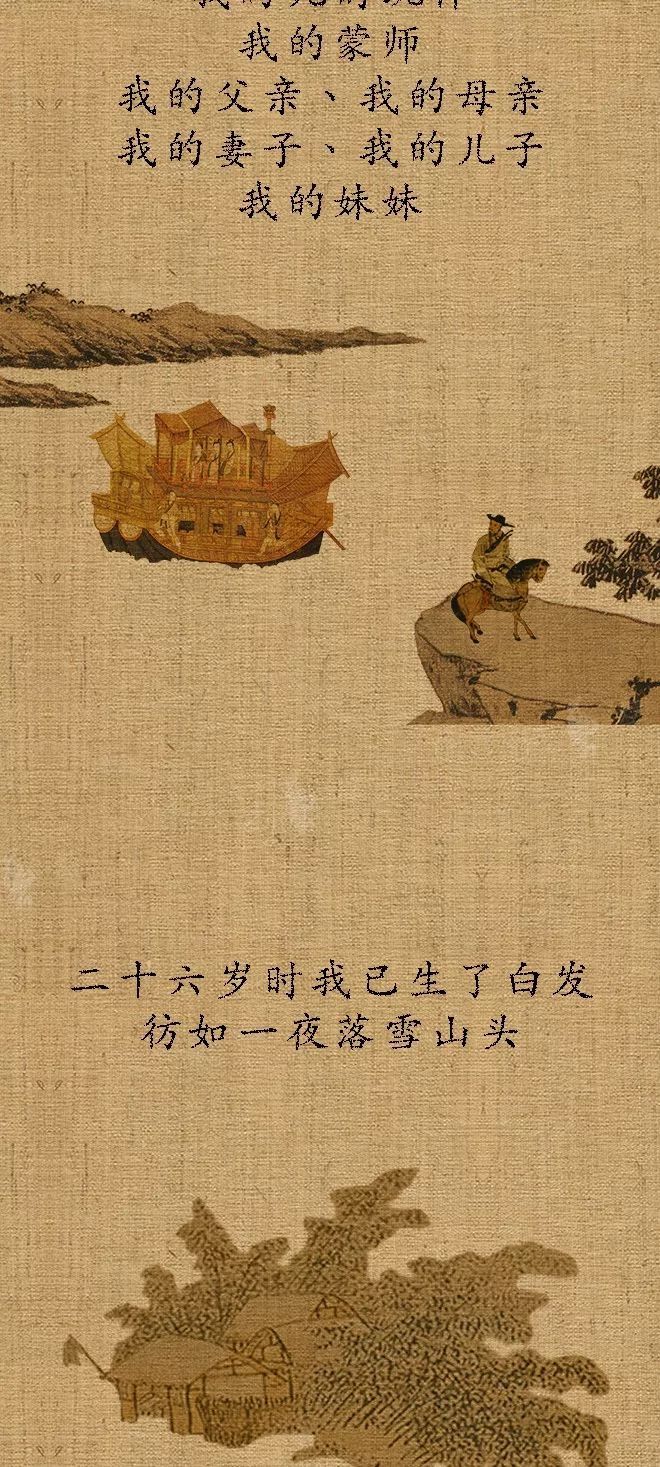 我的蒙师
我的父亲、我的母亲
我的妻子、我的儿子
我的妹妹
二十六岁时我已生了白发
彷如一夜落雪山头